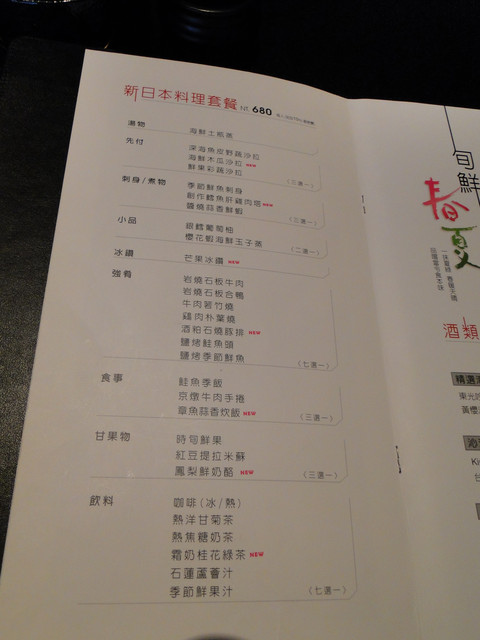 新日本料理套餐 NT. 680
湯物 海鮮土瓶蒸
先付 深海魚皮野蔬沙拉
海鮮木瓜沙拉 NEW
鮮果彩蔬沙拉
(三選一)
刺身/煮物 季節鮮魚刺身
創作鱈魚肝雞肉塔 NEW
醬燒蒜香鮮蝦
(三選一)
小品 銀鱈葡萄柚
櫻花蝦海鮮玉子蒸
(二選一)
冰鑽 芒果冰鑽 NEW
強肴 岩燒石板牛肉
岩燒石板合鴨
牛肉箬竹燒
雞肉朴葉燒
酒粕石燒豚排 NEW
鹽烤鮭魚頭
鹽烤季節鮮魚
(七選一)
食事 鮭魚季飯
京燉牛肉手捲
章魚蒜香炊飯 NEW
(三選一)
甘果物 時旬鮮果
紅豆提拉米蘇
鳳梨鮮奶酪 NEW
(三選一)
飲料 咖啡(冰/熱)
熱洋甘菊茶
熱焦糖奶茶
霜奶桂花綠茶 NEW
石蓮蘆薈汁
季節鮮果汁
(七選一)
旬鮮
春夏
酒類
精選